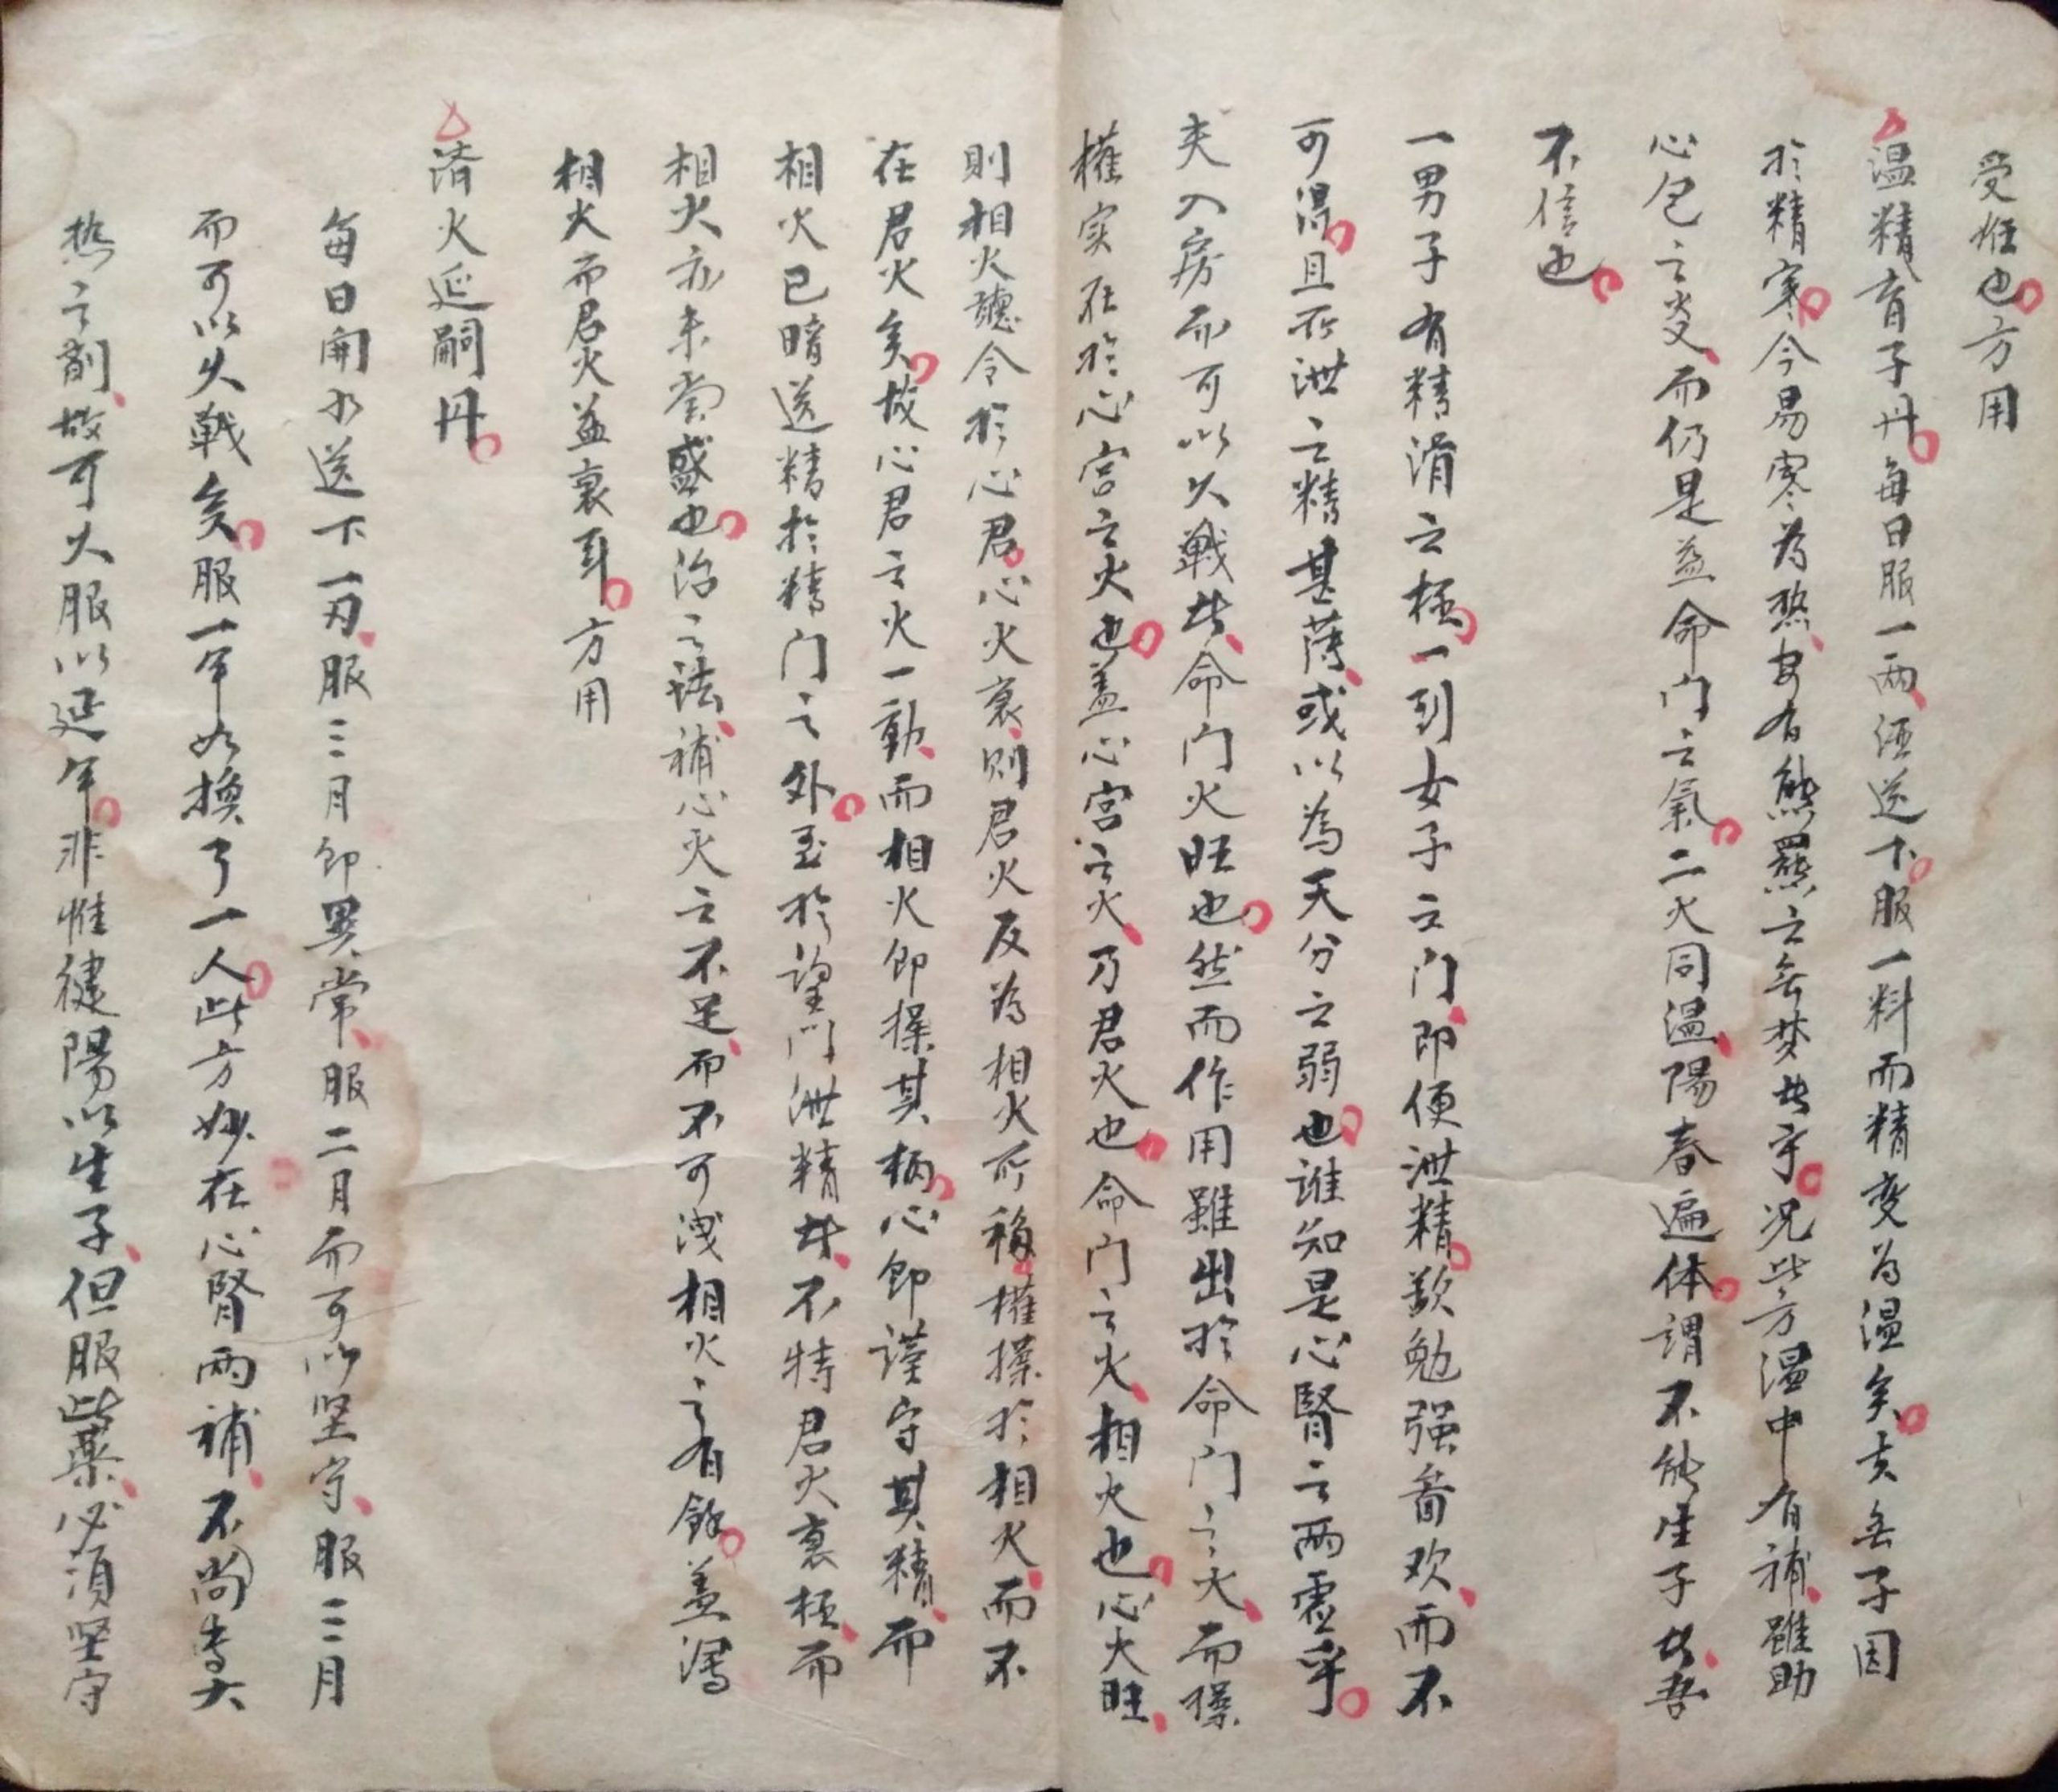 受姙也。方用
温精育子丹。每日服一两、酒送下。服一料而精变为温矣。夫无子因
於精寒。今易寒为热、安有熊羆之无梦者乎。况此方温中有補、雖助
心包之炎、而仍是益命门之氣。二火同温、陽春遍体。谓不能生子者、吾
不信也。
一男子有精滑之極。一到女子之门、即便泄精。欵勉强畜欢、而不
可得。且所泄之精甚薄、或以為天分之弱也。谁知是心腎之两虚乎。
夫入房而可以久戰者、命门火旺也。然而作用雖出於命门之火、而操
權实在於心宫之火也。盖心宫之火、乃君火也。命门之火、相火也。心火旺、
則相火聽令於心君。心火衰、则君火反為相火所移。權操於相火、而不
在君火矣。故心君之火一動、而相火即操其柄。心即谨守其精、而
相火已暗送精於精门之外。至於望门泄精者、不特君火衰極、而
相火亦未尝盛也。治之法、補心火之不足、而不可洩相火之有餘。盖瀉
相火而君火益衰耳。方用
济火延嗣丹。
每日開水送下一刄、服三月即異常、服二月而可以坚守、服三月
而可以久戰矣。服一年如換了一人。此方妙在心腎两補、不尚専大
热之剤、故可久服以延年。非惟健陽以生子、但服此藥、必須坚守